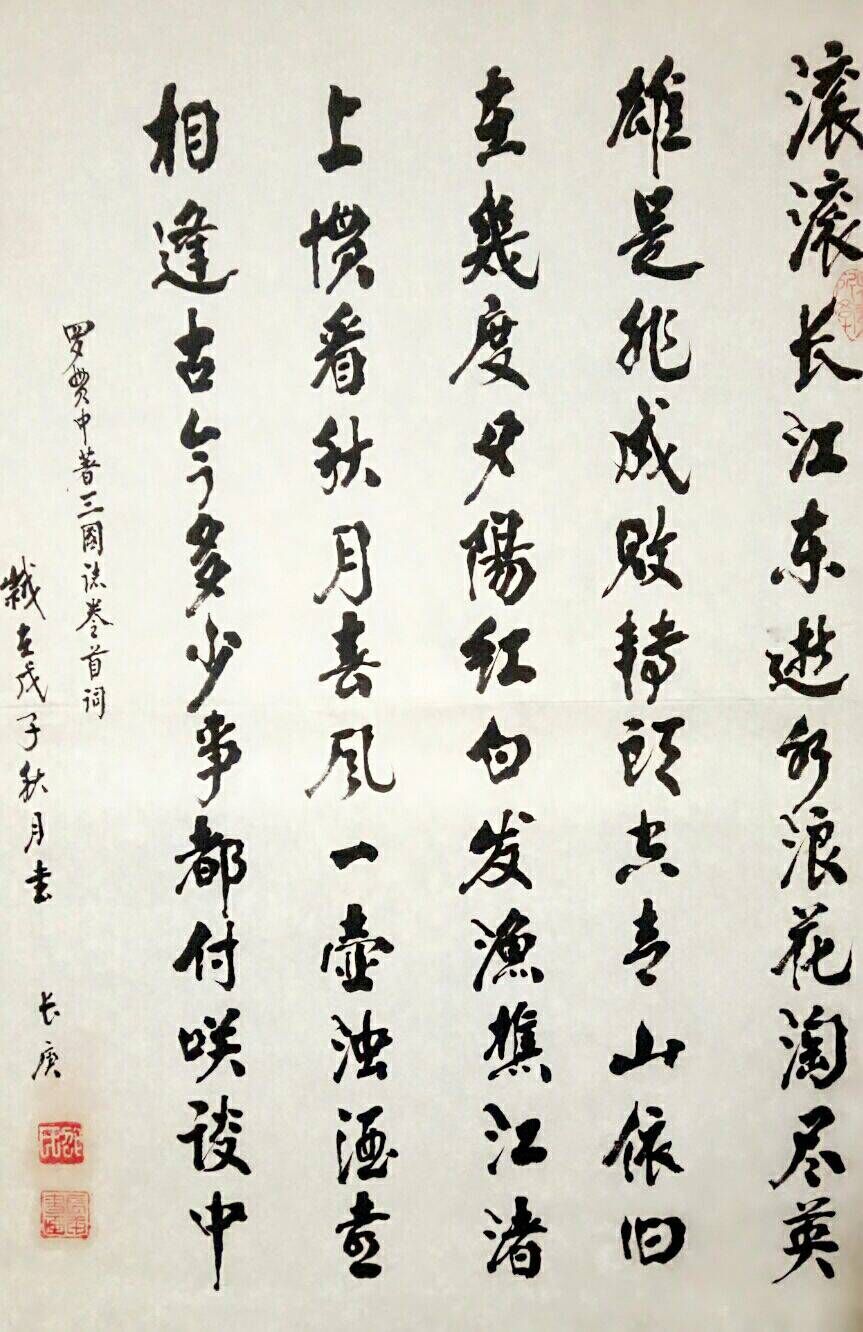 滚滚长江东逝水浪花淘尽英
雄是非成败轉頭空青山依旧
在幾度夕陽红白发漁樵江渚
上惯看秋月春风一壺浊酒喜
相逢古今多少事都付咲谈中
罗贯中著三國誌卷首词
歲在戊子秋月書 长庚